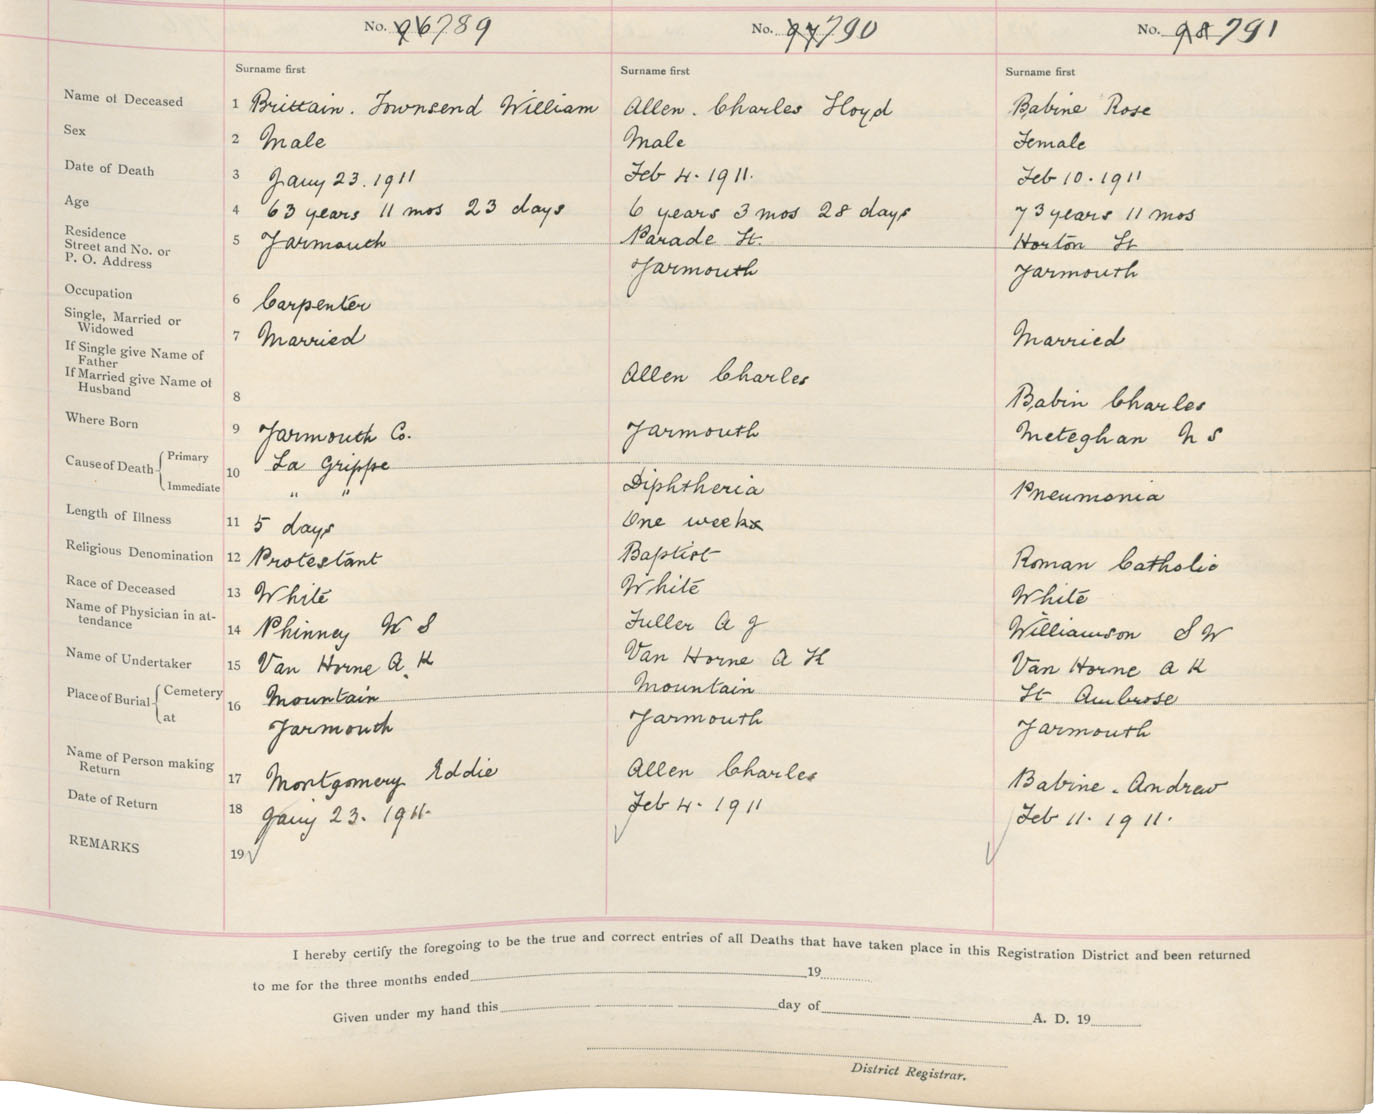 No. 96 789 No. 97 790 No. 98 791
Surname first Surname first Surname first
Name of Deceased 1 Brittain. Townsend William Allen. Charles Lloyd Babine Rose
Sex 2 Male Male Female
Date of Death 3 Jany 23. 1911 Feb 4. 1911. Feb 10. 1911
Age 4 63 years 11 mos 23 days 6 years 3 mos 28 days 73 years 11 mos
Residence 5 Yarmouth Parade St. Horton St
Street and No. or
P. O. Address Yarmouth Yarmouth
Occupation 6 Carpenter
Single, Married or
Widowed 7 Married Married
If Single give Name of
Father Allen Charles
If Married give Name of
Husband 8 Babin Charles
Where Born 9 Yarmouth Co. Yarmouth Meteghan N S
Cause of Death Primary 10 La Grippe
Immediate " " Diphtheria Pneumonia
Length of Illness 11 5 days One week
Religious Denomination 12 Protestant Baptist Roman Catholic
Race of Deceased 13 White White White
Name of Physician in at-
tendance 14 Phinney W S Fuller A J Williamson S W
Name of Undertaker 15 Van Horne A K Van Horne A K Van Horne A K
Place of Burial Cemetery 16 Mountain Mountain St Ambrose
at Yarmouth Yarmouth Yarmouth
Name of Person making
Return 17 Montgomery Eddie Allen Charles Babine. Andrew
Date of Return 18 Jany 23. 1911. Feb 4. 1911 Feb 11. 1911.
REMARKS 19
I hereby certify the foregoing to be the true and correct entries of all Deaths that have taken place in this Registration District and been returned
to me for the three months ended 19
Given under my hand this day of A. D. 19
District Registrar.